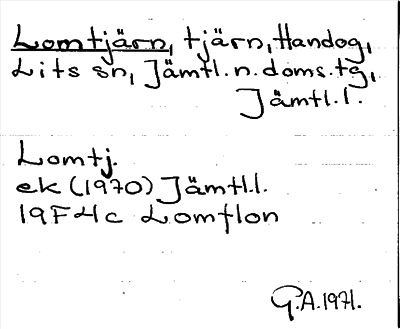 Lomtjärn, tjärn, Handog,
Lits sn, Jämtl. n. doms. tg,
Jämtl. l.
Lomtj.
ek (1970) Jämtl. l.
19F4c Lomtlon
G.A. 1971.